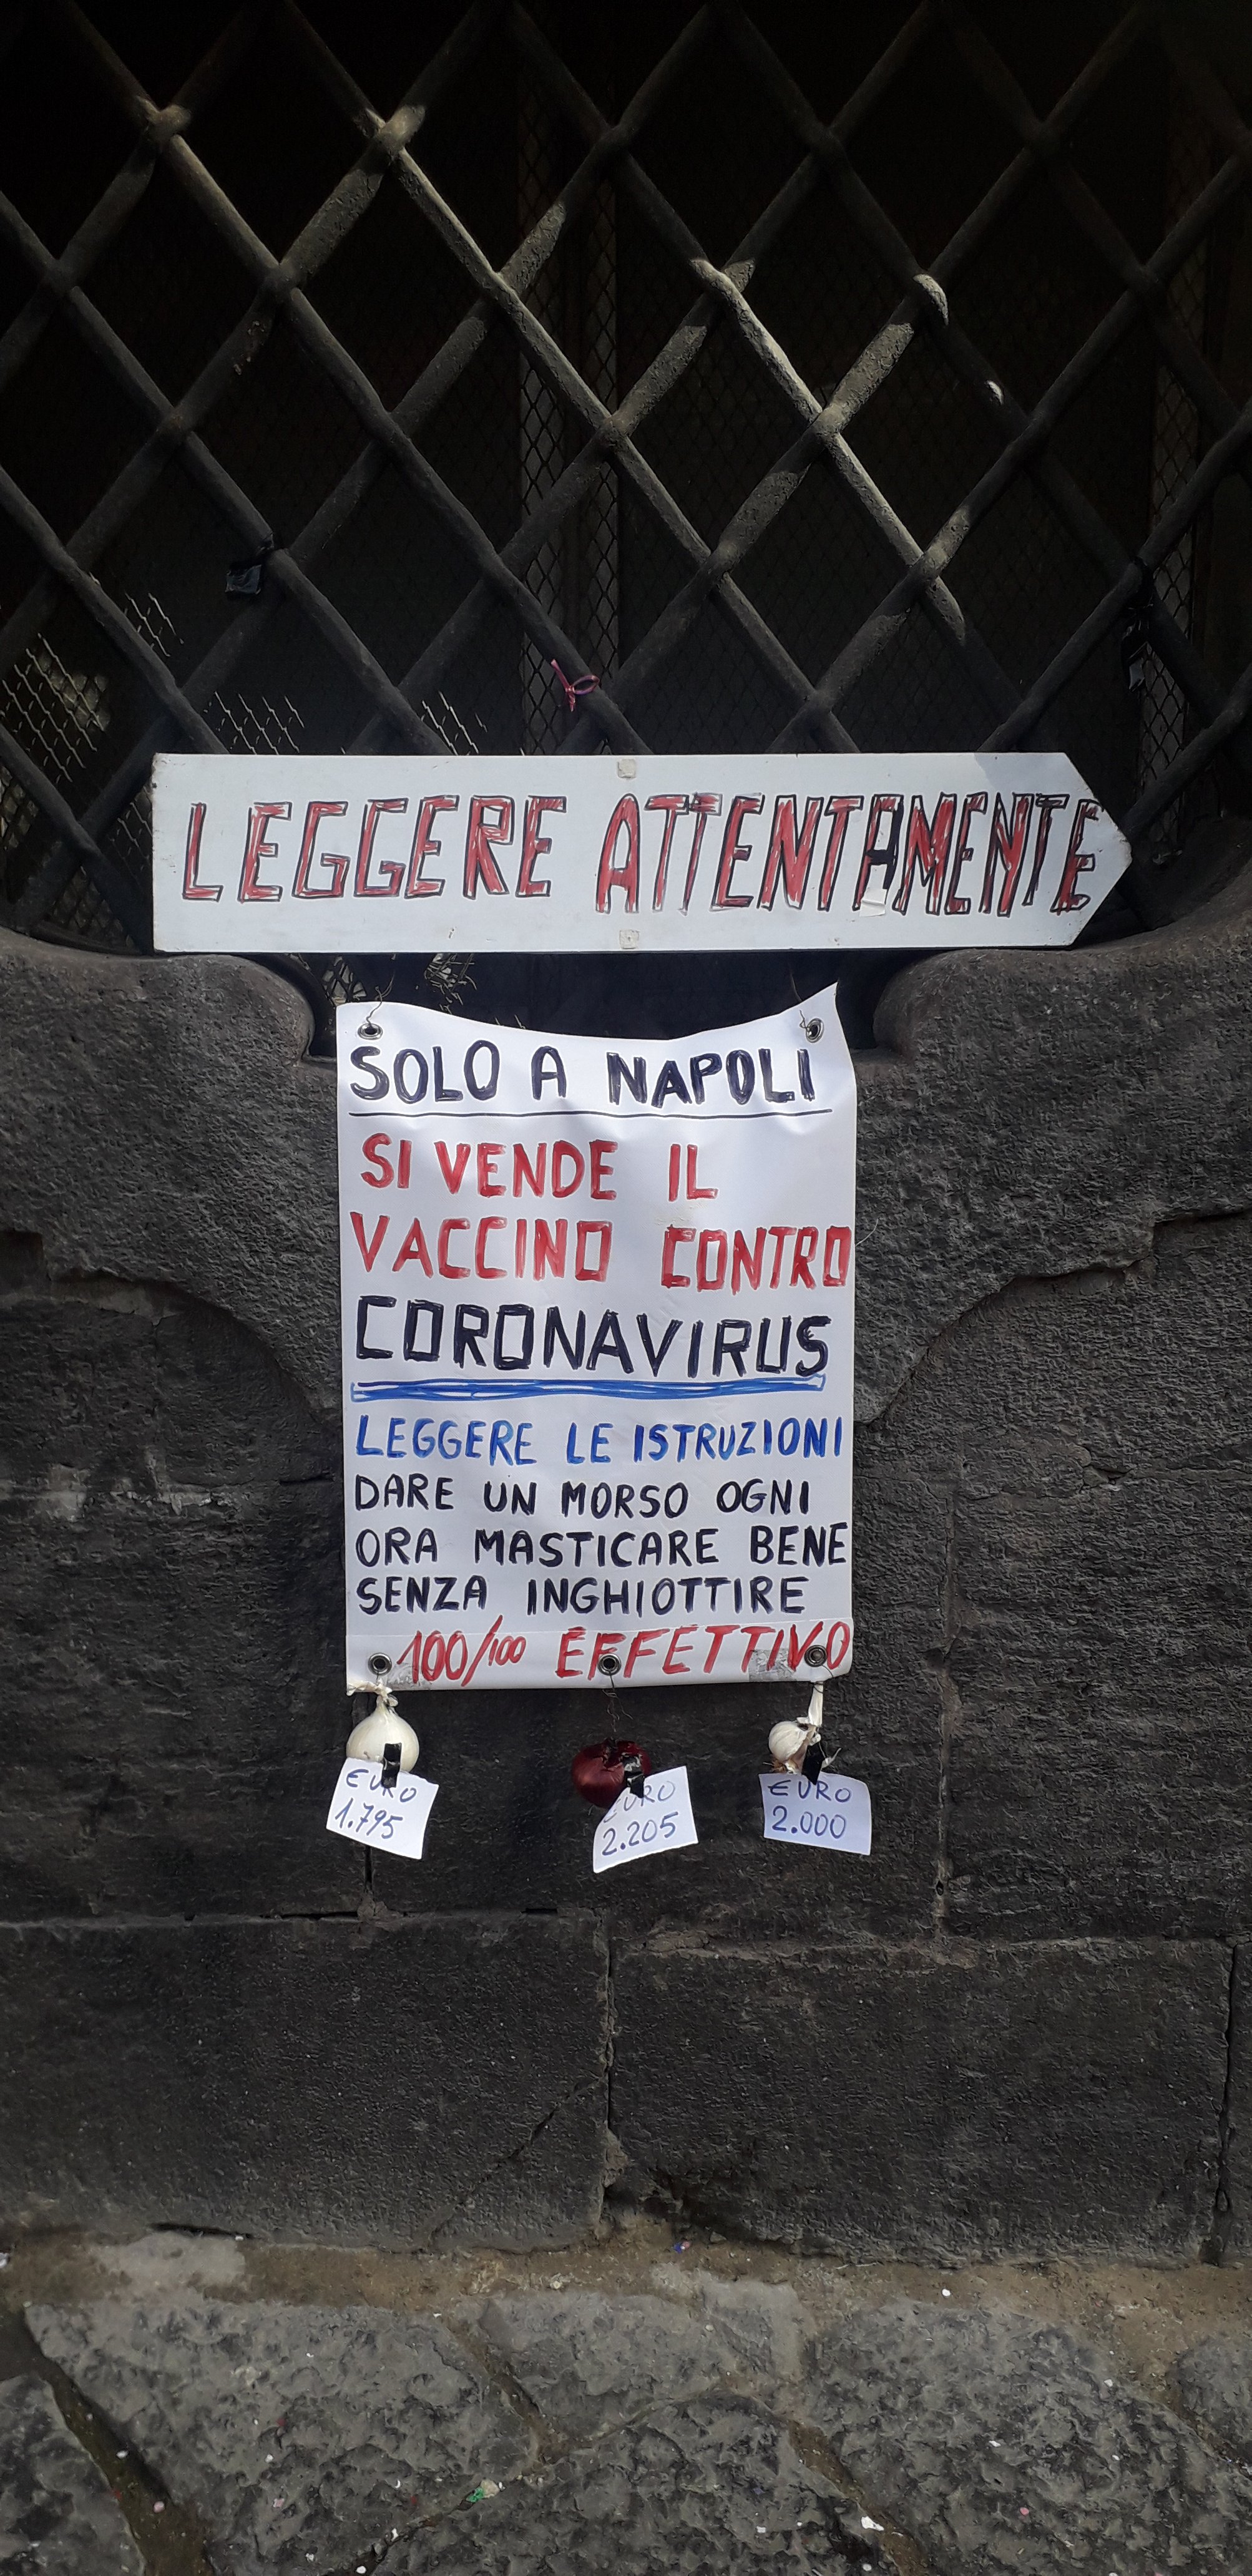 LEGGERE ATTENTAMENTE
SOLO A NAPOLI
SI VENDE IL
VACCINO CONTRO
CORONAVIRUS
LEGGERE LE ISTRUZIONI
DARE UN MORSO OGNI
ORA MASTICARE BENE
SENZA INGHIOTTIRE
100/100 EFFETTIVO
€URO
1.795
€URO
2.205
€URO
2.000